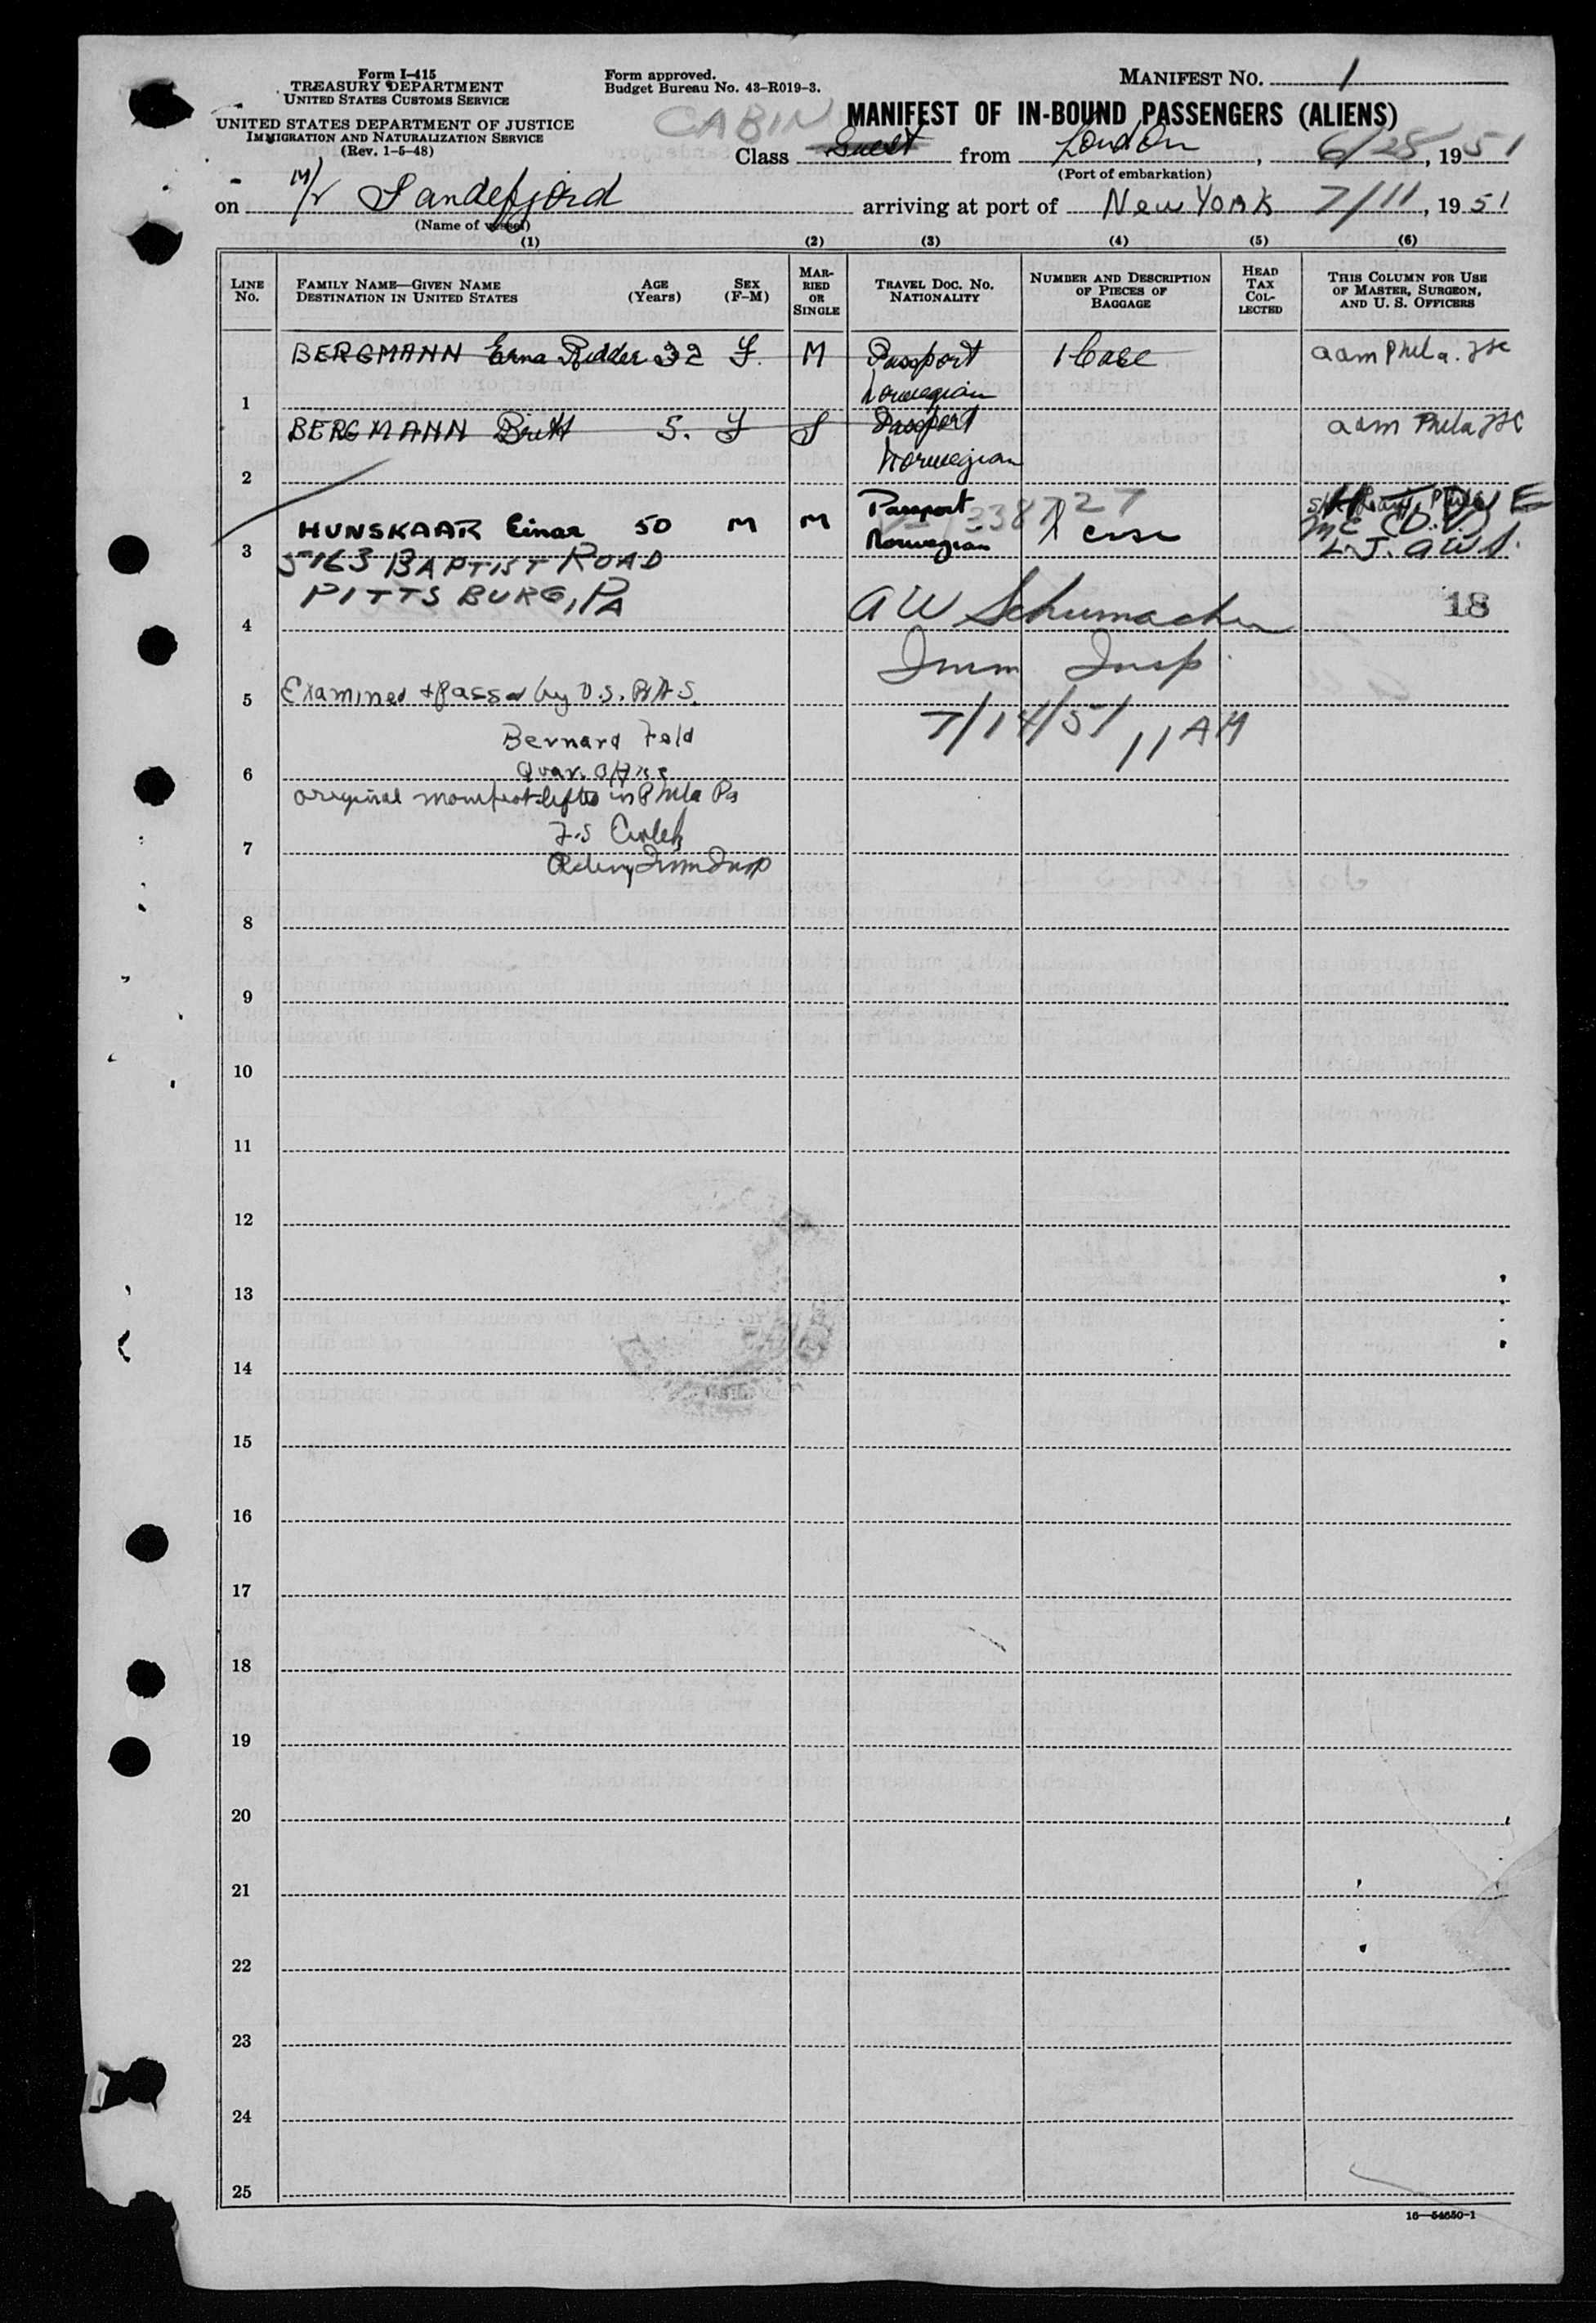 Form I-415
TREASURY DEPARTMENT
UNITED STATES CUSTOMS SERVICE
UNITED STATES DEPARTMENT OF JUSTICE
IMMIGRATION AND NATURALIZATION SERVICE
(Rev. 1-5-48)
Form approved.
Budget Bureau No. 43-R019-3.
MANIFEST NO. 1
CABIN
MANIFEST OF IN-BOUND PASSENGERS (ALIENS)
Class Guest from London, 6/28, 1951
(Port of embarkation)
on M/V Sandefjord arriving at port of New York 7/11, 1951
(Name of vessel)
(1) (2) (3) (4) (5) (6)
LINE NO.
FAMILY NAME—GIVEN NAME
DESTINATION IN UNITED STATES
AGE (Years)
SEX (F-M)
MARRIED OR SINGLE
TRAVEL DOC. NO. NATIONALITY
NUMBER AND DESCRIPTION OF PIECES OF BAGGAGE
HEAD TAX COLLECTED
THIS COLUMN FOR USE OF MASTER, SURGEON, AND U. S. OFFICERS
BERGMANN Erna Ridder 32 F. M Passport 1 Case adm Phila.
1 Norwegian
BERGMANN Britt 5. F S Passport adm Phila
2 Norwegian
HUNSKAAR Einar 50 M M Passport 1 case
3 Norwegian
5163 BAPTIST ROAD
PITTSBURG, PA
4 A W Schumacher 18
Imm Insp.
5 Examined & passed by U.S. P.H.S.
7/14/51 11 AM
Bernard Feld
6 Quar. Office
original manifest lifted in Phila Pa
7
Acting Imm Insp
8
9
10
11
12
13
14
15
16
17
18
19
20
21
22
23
24
25
16—54650-1